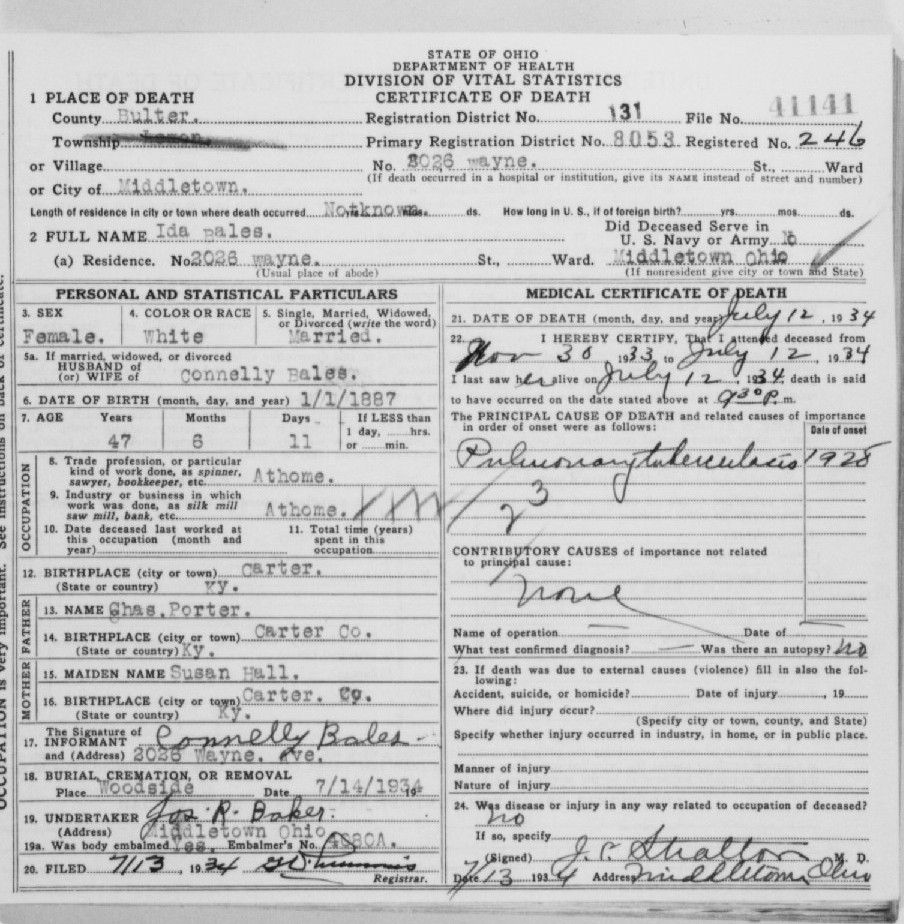 STATE OF OHIO
DEPARTMENT OF HEALTH
DIVISION OF VITAL STATISTICS
CERTIFICATE OF DEATH
1 PLACE OF DEATH
County Bulter. Registration District No. 131 File No. 41141
Township Lemon. Primary Registration District No. 8053 Registered No. 246
or Village No. 2026 wayne. St., Ward
(If death occurred in a hospital or institution, give its NAME instead of street and number)
or City of Middletown.
Length of residence in city or town where death occurred Notknown. ds. How long in U. S., if of foreign birth? yrs. mos. ds.
2 FULL NAME Ida Bales. Did Deceased Serve in
U. S. Navy or Army
(a) Residence. No 2026 wayne. St., Ward. Middletown Ohio
(Usual place of abode) (If nonresident give city or town and State)
PERSONAL AND STATISTICAL PARTICULARS
3. SEX 4. COLOR OR RACE 5. Single, Married, Widowed,
or Divorced (write the word)
Female. White Married.
5a. If married, widowed, or divorced
HUSBAND of
(or) WIFE of Connelly Bales.
6. DATE OF BIRTH (month, day, and year) 1/1/1887
7. AGE Years Months Days If LESS than
1 day, hrs.
47 6 11 or min.
OCCUPATION
8. Trade profession, or particular
kind of work done, as spinner,
sawyer, bookkeeper, etc. Athome.
9. Industry or business in which
work was done, as silk mill
saw mill, bank, etc. Athome.
10. Date deceased last worked at
this occupation (month and
year)
11. Total time (years)
spent in this
occupation
12. BIRTHPLACE (city or town) Carter.
(State or country) Ky.
FATHER
13. NAME Chas. Porter.
14. BIRTHPLACE (city or town) Carter Co.
(State or country) Ky.
MOTHER
15. MAIDEN NAME Susan Hall.
16. BIRTHPLACE (city or town) Carter. Co.
(State or country) Ky.
17. The Signature of
INFORMANT Connelly Bales
and (Address) 2026 Wayne. Ave.
18. BURIAL, CREMATION, OR REMOVAL
Place Woodside Date 7/14/1934 19
19. UNDERTAKER Jos. R. Baker.
(Address) Middletown Ohio
19a. Was body embalmed Yes. Embalmer's No. 4680A.
20. FILED 7/13, 1934
Registrar.
MEDICAL CERTIFICATE OF DEATH
21. DATE OF DEATH (month, day, and year) July 12, 1934
22. I HEREBY CERTIFY, That I attended deceased from
Nov 30, 1933 to July 12, 1934
I last saw her alive on July 12, 1934 death is said
to have occurred on the date stated above at 9 30 P. m.
The PRINCIPAL CAUSE OF DEATH and related causes of importance
in order of onset were as follows: Date of onset
Pulmonary tuberculosis 1928
23
CONTRIBUTORY CAUSES of importance not related
to principal cause:
none
Name of operation Date of
What test confirmed diagnosis? Was there an autopsy? No
23. If death was due to external causes (violence) fill in also the fol-
lowing:
Accident, suicide, or homicide? Date of injury , 19
Where did injury occur?
(Specify city or town, county, and State)
Specify whether injury occurred in industry, in home, or in public place.
Manner of injury
Nature of injury
24. Was disease or injury in any way related to occupation of deceased?
no
If so, specify
(Signed) J. P. Shalton M. D.
Date 7/13 1934 Address Middletown, Ohio
OCCUPATION is very important. See instructions on back of certificate.